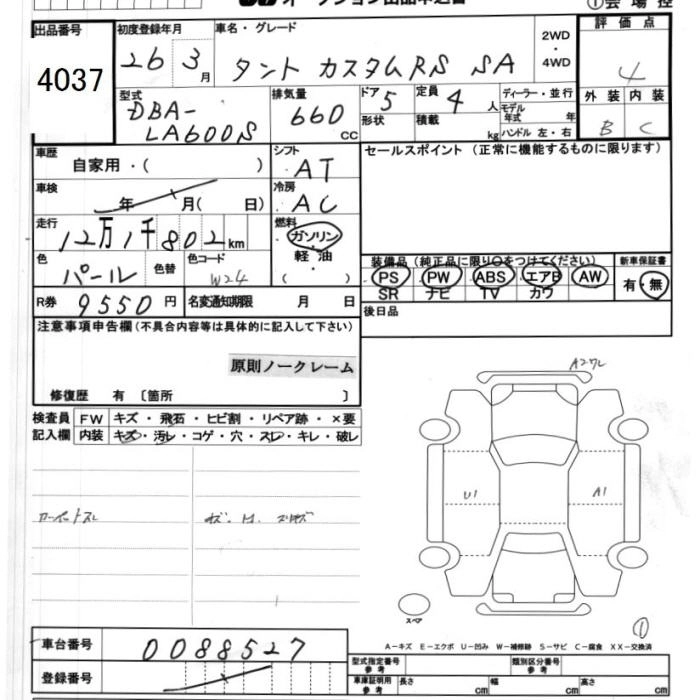 オークション出品申込書
①会場控
出品番号
4037
初度登録年月
26 3月
車名・グレード
タント カスタムRS SA
2WD
・
4WD
評価点
4
外装 内装
B C
型式
DBA-
LA600S
排気量
660
CC
ドア 5
形状
定員 4 人
積載 kg
ディーラー・並行
モデル
年式 年
ハンドル 左・右
車歴
自家用・( )
シフト
AT
車検
年 月( 日)
冷房
AC
走行
12万1千802km
燃料
ガソリン
軽油
( )
色
パール
色替
色コード
W24
R券 9550円
名変通知期限 月 日
セールスポイント (正常に機能するものに限ります)
装備品 (純正品に限り○をつけてください)
PS ・ PW ・ ABS ・ エアB ・ AW
SR ナビ TV カワ
新車保証書
有・無
後日品
注意事項申告欄 (不具合内容等は具体的に記入して下さい)
原則ノークレーム
修復歴 有 〔箇所 〕
検査員
記入欄
FW キズ・飛石・ヒビ割・リペア跡・×要
内装 キズ・汚レ・コゲ・穴・スレ・キレ・破レ
U1
A1
スペア
①
A-キズ E-エクボ U-凹み W-補修跡 S-サビ C-腐食 XX-交換済
車台番号 0088527
登録番号
型式指定番号
参考
類別区分番号
参考
車庫証明用
参考
長さ cm
幅 cm
高さ cm